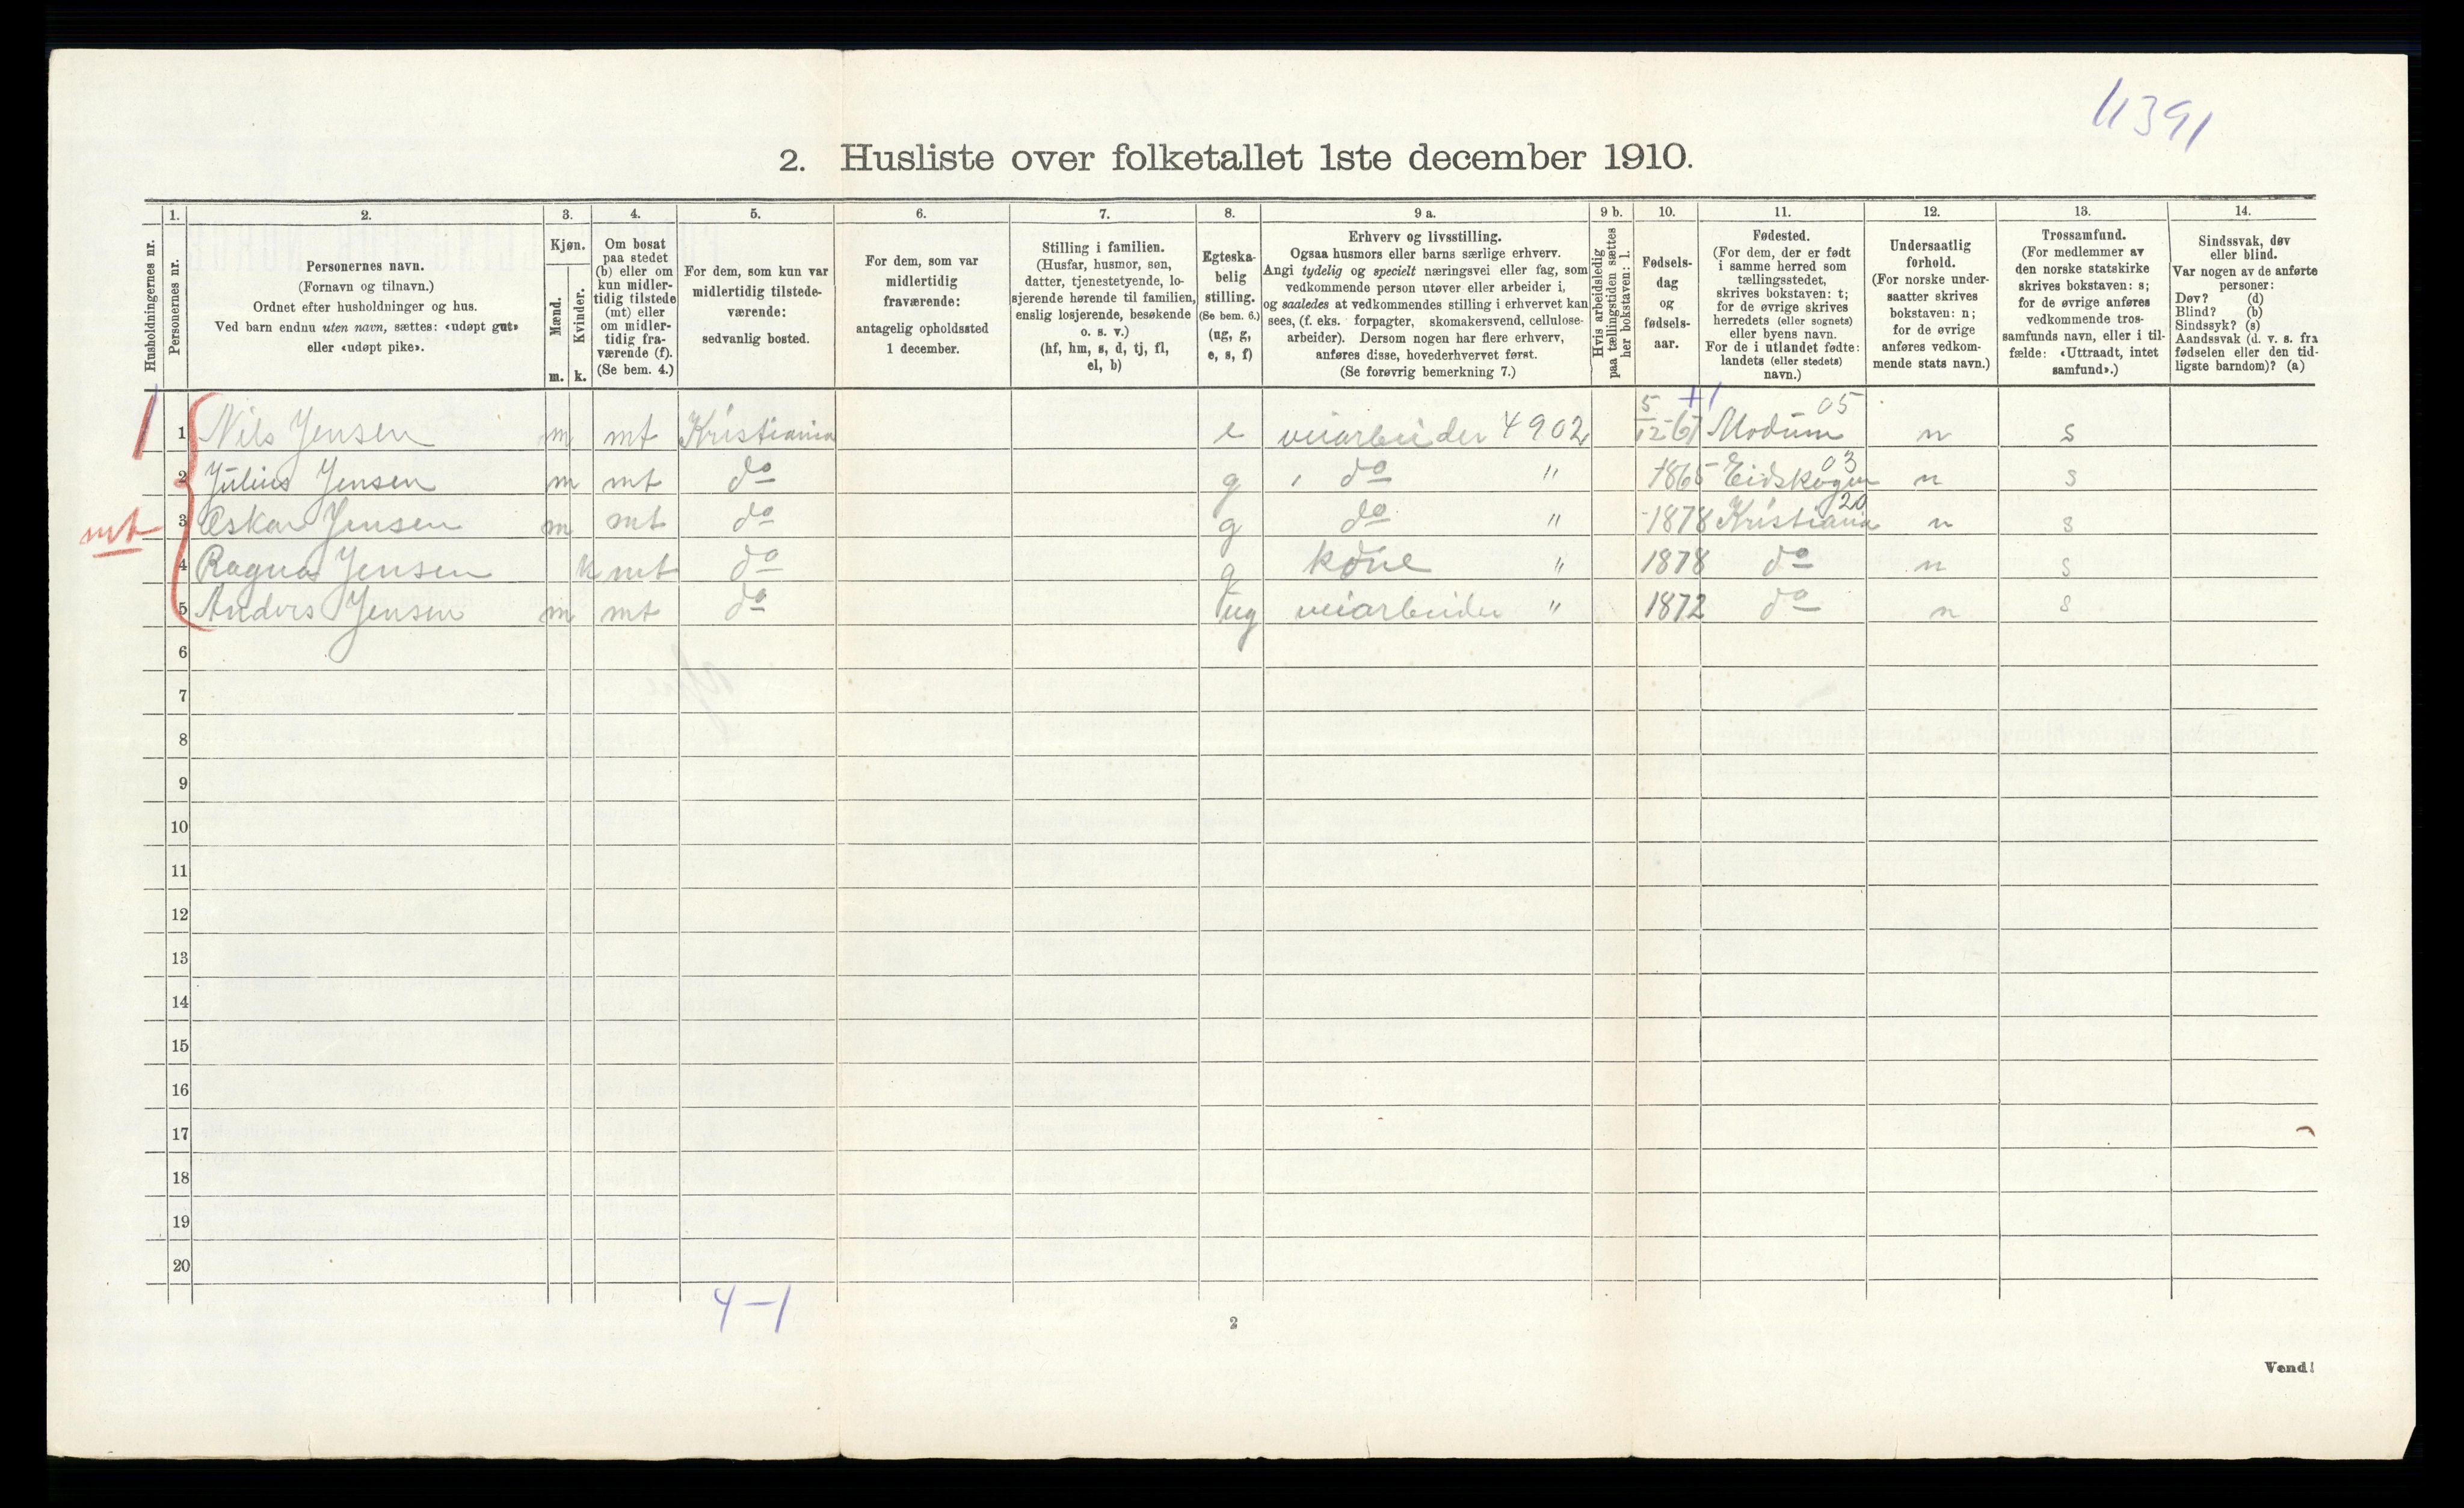 11391
2. Husliste over folketallet 1ste december 1910.
Husholdningernes nr.
1.
Personernes nr.
2.
Personernes navn.
(Fornavn og tilnavn.)
Ordnet efter husholdninger og hus.
Ved barn endnu uten navn, sættes: «udøpt gut»
eller «udøpt pike».
3.
Kjøn.
Mænd.
Kvinder.
m. k.
4.
Om bosat
paa stedet
(b) eller om
kun midler-
tidig tilstede
(mt) eller
om midler-
tidig fra-
værende (f).
(Se bem. 4.)
5.
For dem, som kun var
midlertidig tilstede-
værende:
sedvanlig bosted.
6.
For dem, som var
midlertidig
fraværende:
antagelig opholdssted
1 december.
7.
Stilling i familien.
(Husfar, husmor, søn,
datter, tjenestetyende, lo-
sjerende hørende til familien,
enslig losjerende, besøkende
o. s. v.)
(hf, hm, s, d, tj, fl,
el, b)
8.
Egteska-
belig
stilling.
(Se bem. 6.)
(ug, g,
e, s, f)
9 a.
Erhverv og livsstilling.
Ogsaa husmors eller barns særlige erhverv.
Angi tydelig og specielt næringsvei eller fag, som
vedkommende person utøver eller arbeider i,
og saaledes at vedkommendes stilling i erhvervet kan
sees, (f. eks. forpagter, skomakersvend, cellulose-
arbeider). Dersom nogen har flere erhverv,
anføres disse, hovederhvervet først.
(Se forøvrig bemerkning 7.)
9 b.
Hvis arbeidsledig
paa tællingstiden sættes
her bokstaven: l.
10.
Fødsels-
dag
og
fødsels-
aar.
11.
Fødested.
(For dem, der er født
i samme herred som
tællingsstedet,
skrives bokstaven: t;
for de øvrige skrives
herredets (eller sognets)
eller byens navn.
For de i utlandet fødte:
landets (eller stedets)
navn.)
12.
Undersaatlig
forhold.
(For norske under-
saatter skrives
bokstaven: n;
for de øvrige
anføres vedkom-
mende stats navn.)
13.
Trossamfund.
(For medlemmer av
den norske statskirke
skrives bokstaven: s;
for de øvrige anføres
vedkommende tros-
samfunds navn, eller i til-
fælde: «Uttraadt, intet
samfund».)
14.
Sindssvak, døv
eller blind.
Var nogen av de anførte
personer:
Døv? (d)
Blind? (b)
Sindssyk? (s)
Aandssvak (d. v. s. fra
fødselen eller den tid-
ligste barndom)? (a)
+1 05
1 1 Nils Jensen m mt Kristiania e veiarbeider 4902 5/12-67 Modum n s
03
2 Julius Jensen m mt do g do " 1865 Eidskogen n s
20
mt 3 Oskar Jensen m mt do g do " 1878 Kristiania n s
4 Ragna Jensen k mt do g kone " 1878 do n s
5 Anders Jensen m mt do ug veiarbeider " 1872 do n s
6
7
8
9
10
11
12
13
14
15
16
17
18
19
20
4-1
2
Vend!